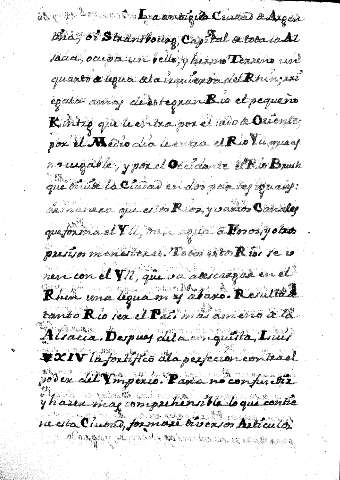 La antigua Ciudad de Argen
tina, os Strasbourg, Capital de toda la Al
sacia, ocupa un bello, y llano Terreno un
quarto de legua de la izquierda del Rhin;
de este gran Rio el pequeño
Kintzg que le entra por el lado de Oriente
por el Medio dia le entra el Rio Yll, que es
navegable, y por el Occidente el Rio Brush
que divide la Ciudad en dos partes iguales;
de manera que estos Rios, y varios Canales
que forma el Yll, dan agua à Fosos, y otros
precisos menesteres. Todos estos Rios se u
nen con el Yll, que va a descargar en el
Rhin una legua mas abaxo. Resulta de
tanto Rio ser el Pais mas ameno de la
Alsacia. Despues de la conquista, Luis
XIV la fortificó à la perfeccion contra el
poder del Ymperio. Para no confundir
y hacer mas comprehensible lo que contie
ne esta Ciudad, formaré diversos Articulos